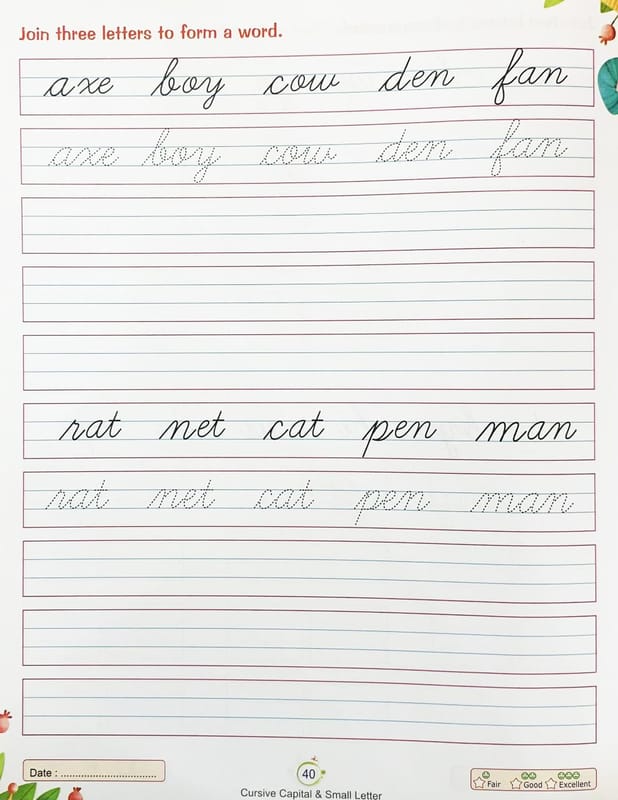 Join three letters to form a word.
axe boy cow den fan
axe boy cow den fan
rat net cat pen man
rat net cat pen man
Date : ....................................
40
Fair Good Excellent
Cursive Capital & Small Letter